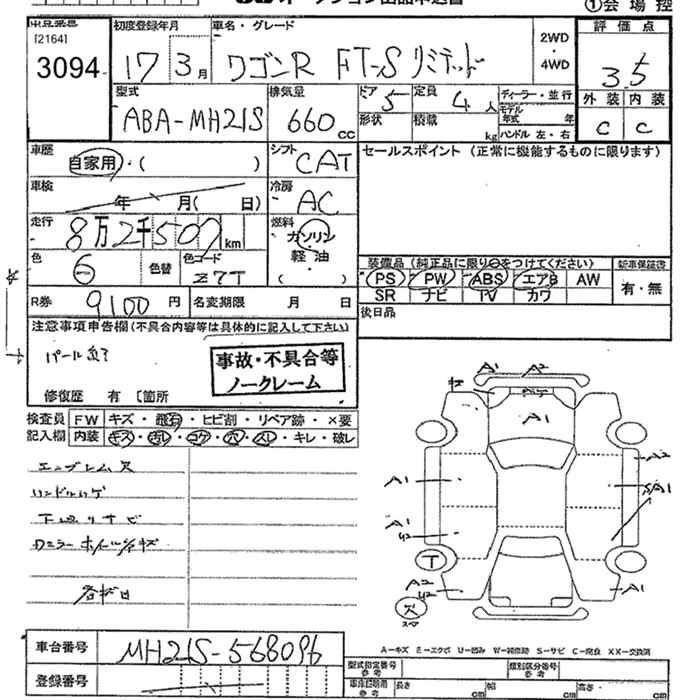 オークション出品申込書
①会場控
出品番号
[2164]
3094
初度登録年月
17 3月
車名・グレード
ワゴンR FT-Sリミテッド
2WD
・
4WD
評価点
3.5
外装 内装
C C
型式
ABA-MH21S
排気量
660cc
ドア
5
定員
4人
形状
積載
kg
ディーラー・並行
モデル年式 年
ハンドル 左・右
車歴
自家用・( )
シフト
CAT
車検
年 月( 日)
冷房
AC
走行
8万2千507km
燃料
ガソリン
・
軽・油
( )
色
⑥
色替
色コード
Z7T
R券
9100円
名変期限 月 日
セールスポイント (正常に機能するものに限ります)
装備品(純正品に限り○をつけてください)
新車保証書
PS PW ABS エアB AW
SR ナビ TV カワ
有・無
後日品
注意事項申告欄(不具合内容等は具体的に記入して下さい)
事故・不具合等
ノークレーム
修復歴 有 〔箇所
検査員
記入欄
FW キズ・飛石・ヒビ割・リペア跡・×要
内装 キズ・汚レ・コゲ・穴・スレ・キレ・破レ
エンブレム欠
ハンドルハゲ
下廻リサビ
A1 A2
A1
A1 A2
A1 SA1
A1
U2
T
A2
U2
A1
欠
スペア
A-キズ E-エクボ U-凹み W-補修跡 S-サビ C-腐食 XX-交換済
車台番号
MH21S-568096
登録番号
型式指定番号
参考
類別区分番号
参考
車庫証明用
参考
長さ cm
幅 cm
高さ cm